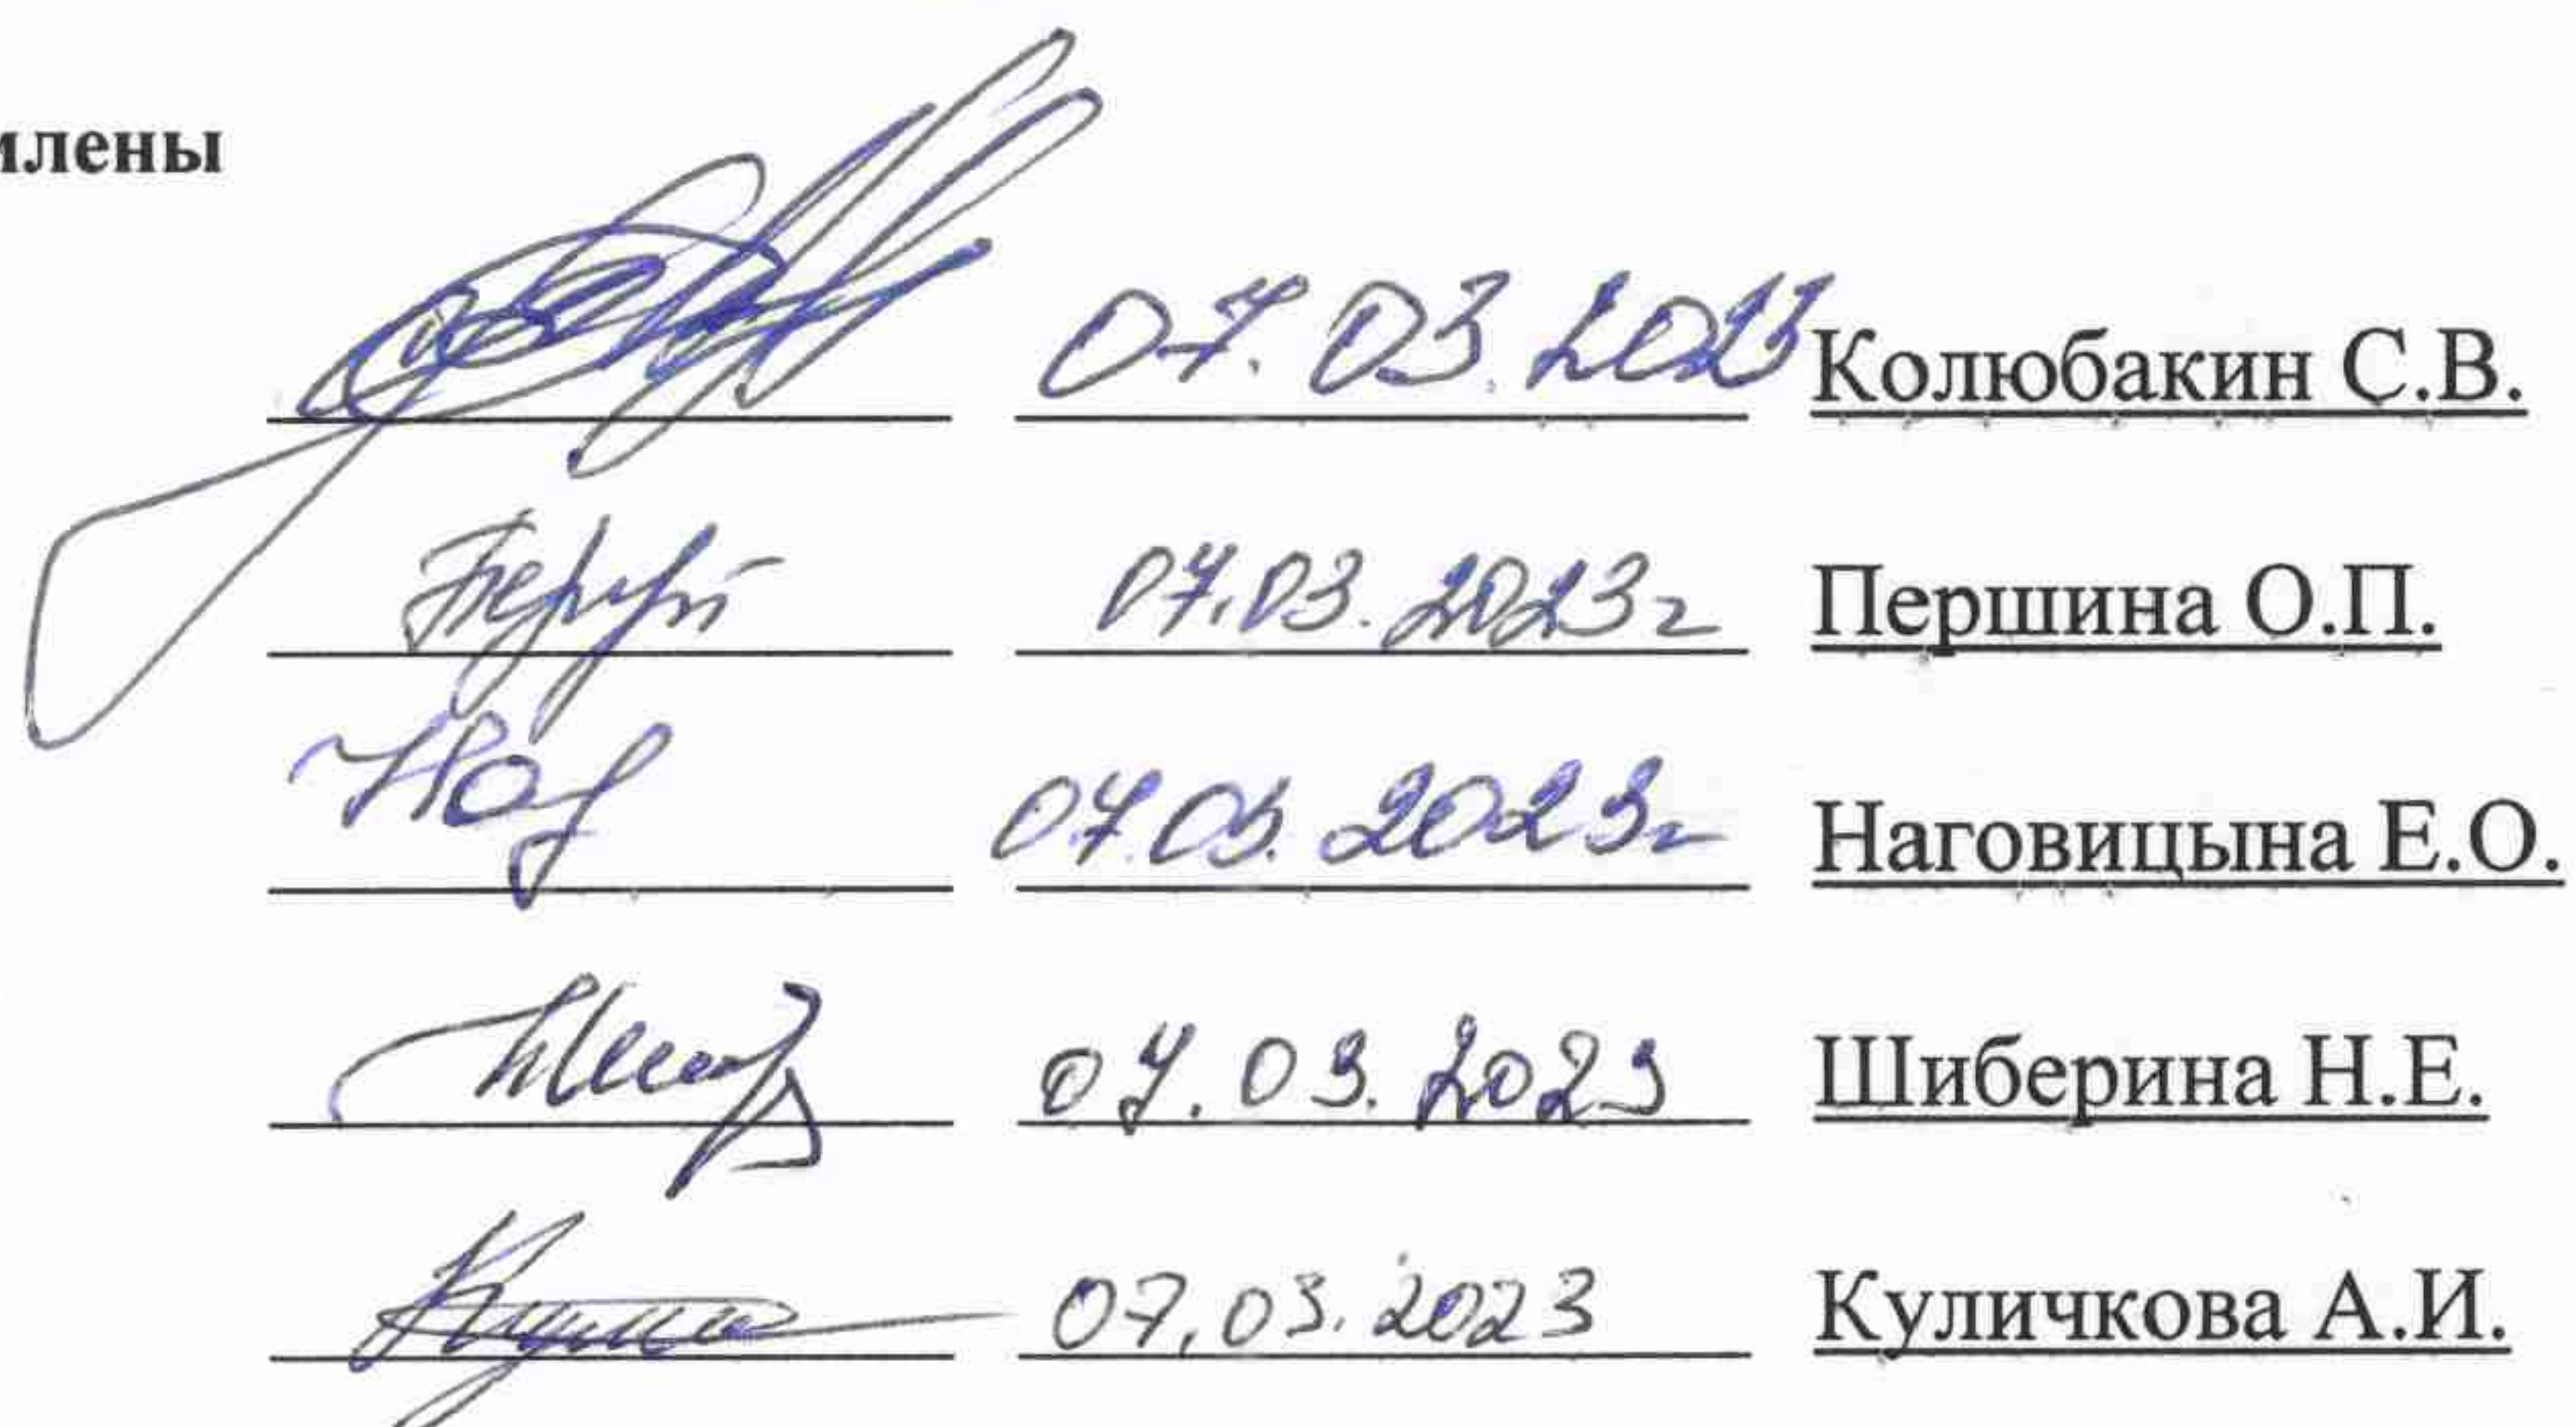 млены
07.03.2023 Колюбакин С.В.
07.03.2023г Першина О.П.
07.03.2023г Наговицына Е.О.
07.03.2023 Шиберина Н.Е.
07.03.2023 Куличкова А.И.